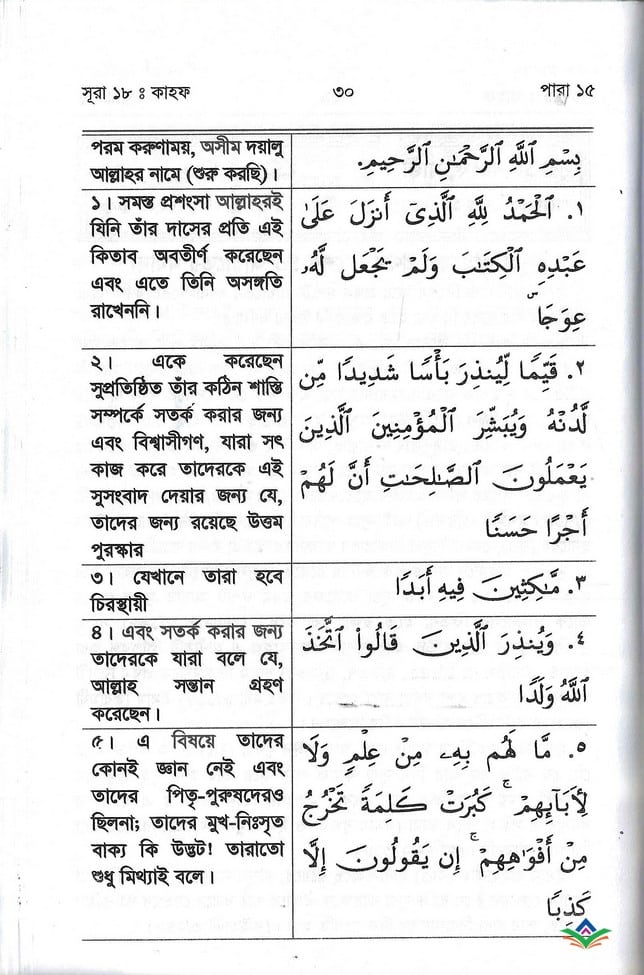 সূরা ১৮ ঃ কাহফ ৩০ পারা ১৫
পরম করুণাময়, অসীম দয়ালু
আল্লাহর নামে (শুরু করছি)।
بِسْمِ ٱللَّهِ ٱلرَّحْمَٰنِ ٱلرَّحِيمِ.
১। সমস্ত প্রশংসা আল্লাহরই
যিনি তাঁর দাসের প্রতি এই
কিতাব অবতীর্ণ করেছেন
এবং এতে তিনি অসঙ্গতি
রাখেননি।
١. ٱلْحَمْدُ لِلَّهِ ٱلَّذِىٓ أَنزَلَ عَلَىٰ
عَبْدِهِ ٱلْكِتَٰبَ وَلَمْ يَجْعَل لَّهُۥ
عِوَجَاۜ
২। একে করেছেন
সুপ্রতিষ্ঠিত তাঁর কঠিন শাস্তি
সম্পর্কে সতর্ক করার জন্য
এবং বিশ্বাসীগণ, যারা সৎ
কাজ করে তাদেরকে এই
সুসংবাদ দেয়ার জন্য যে,
তাদের জন্য রয়েছে উত্তম
পুরস্কার
٢. قَيِّمًا لِّيُنذِرَ بَأْسًا شَدِيدًا مِّن
لَّدُنْهُ وَيُبَشِّرَ ٱلْمُؤْمِنِينَ ٱلَّذِينَ
يَعْمَلُونَ ٱلصَّٰلِحَٰتِ أَنَّ لَهُمْ
أَجْرًا حَسَنًا
৩। যেখানে তারা হবে
চিরস্থায়ী
٣. مَّٰكِثِينَ فِيهِ أَبَدًا
৪। এবং সতর্ক করার জন্য
তাদেরকে যারা বলে যে,
আল্লাহ সন্তান গ্রহণ
করেছেন।
٤. وَيُنذِرَ ٱلَّذِينَ قَالُوا۟ ٱتَّخَذَ
ٱللَّهُ وَلَدًا
৫। এ বিষয়ে তাদের
কোনই জ্ঞান নেই এবং
তাদের পিতৃ-পুরুষদেরও
ছিলনা; তাদের মুখ-নিঃসৃত
বাক্য কি উদ্ভট! তারাতো
শুধু মিথ্যাই বলে।
٥. مَّا لَهُم بِهِۦ مِنْ عِلْمٍ وَلَا
لِءَابَآئِهِمْ ۚ كَبُرَتْ كَلِمَةً تَخْرُجُ
مِنْ أَفْوَٰهِهِمْ ۚ إِن يَقُولُونَ إِلَّا
كَذِبًا